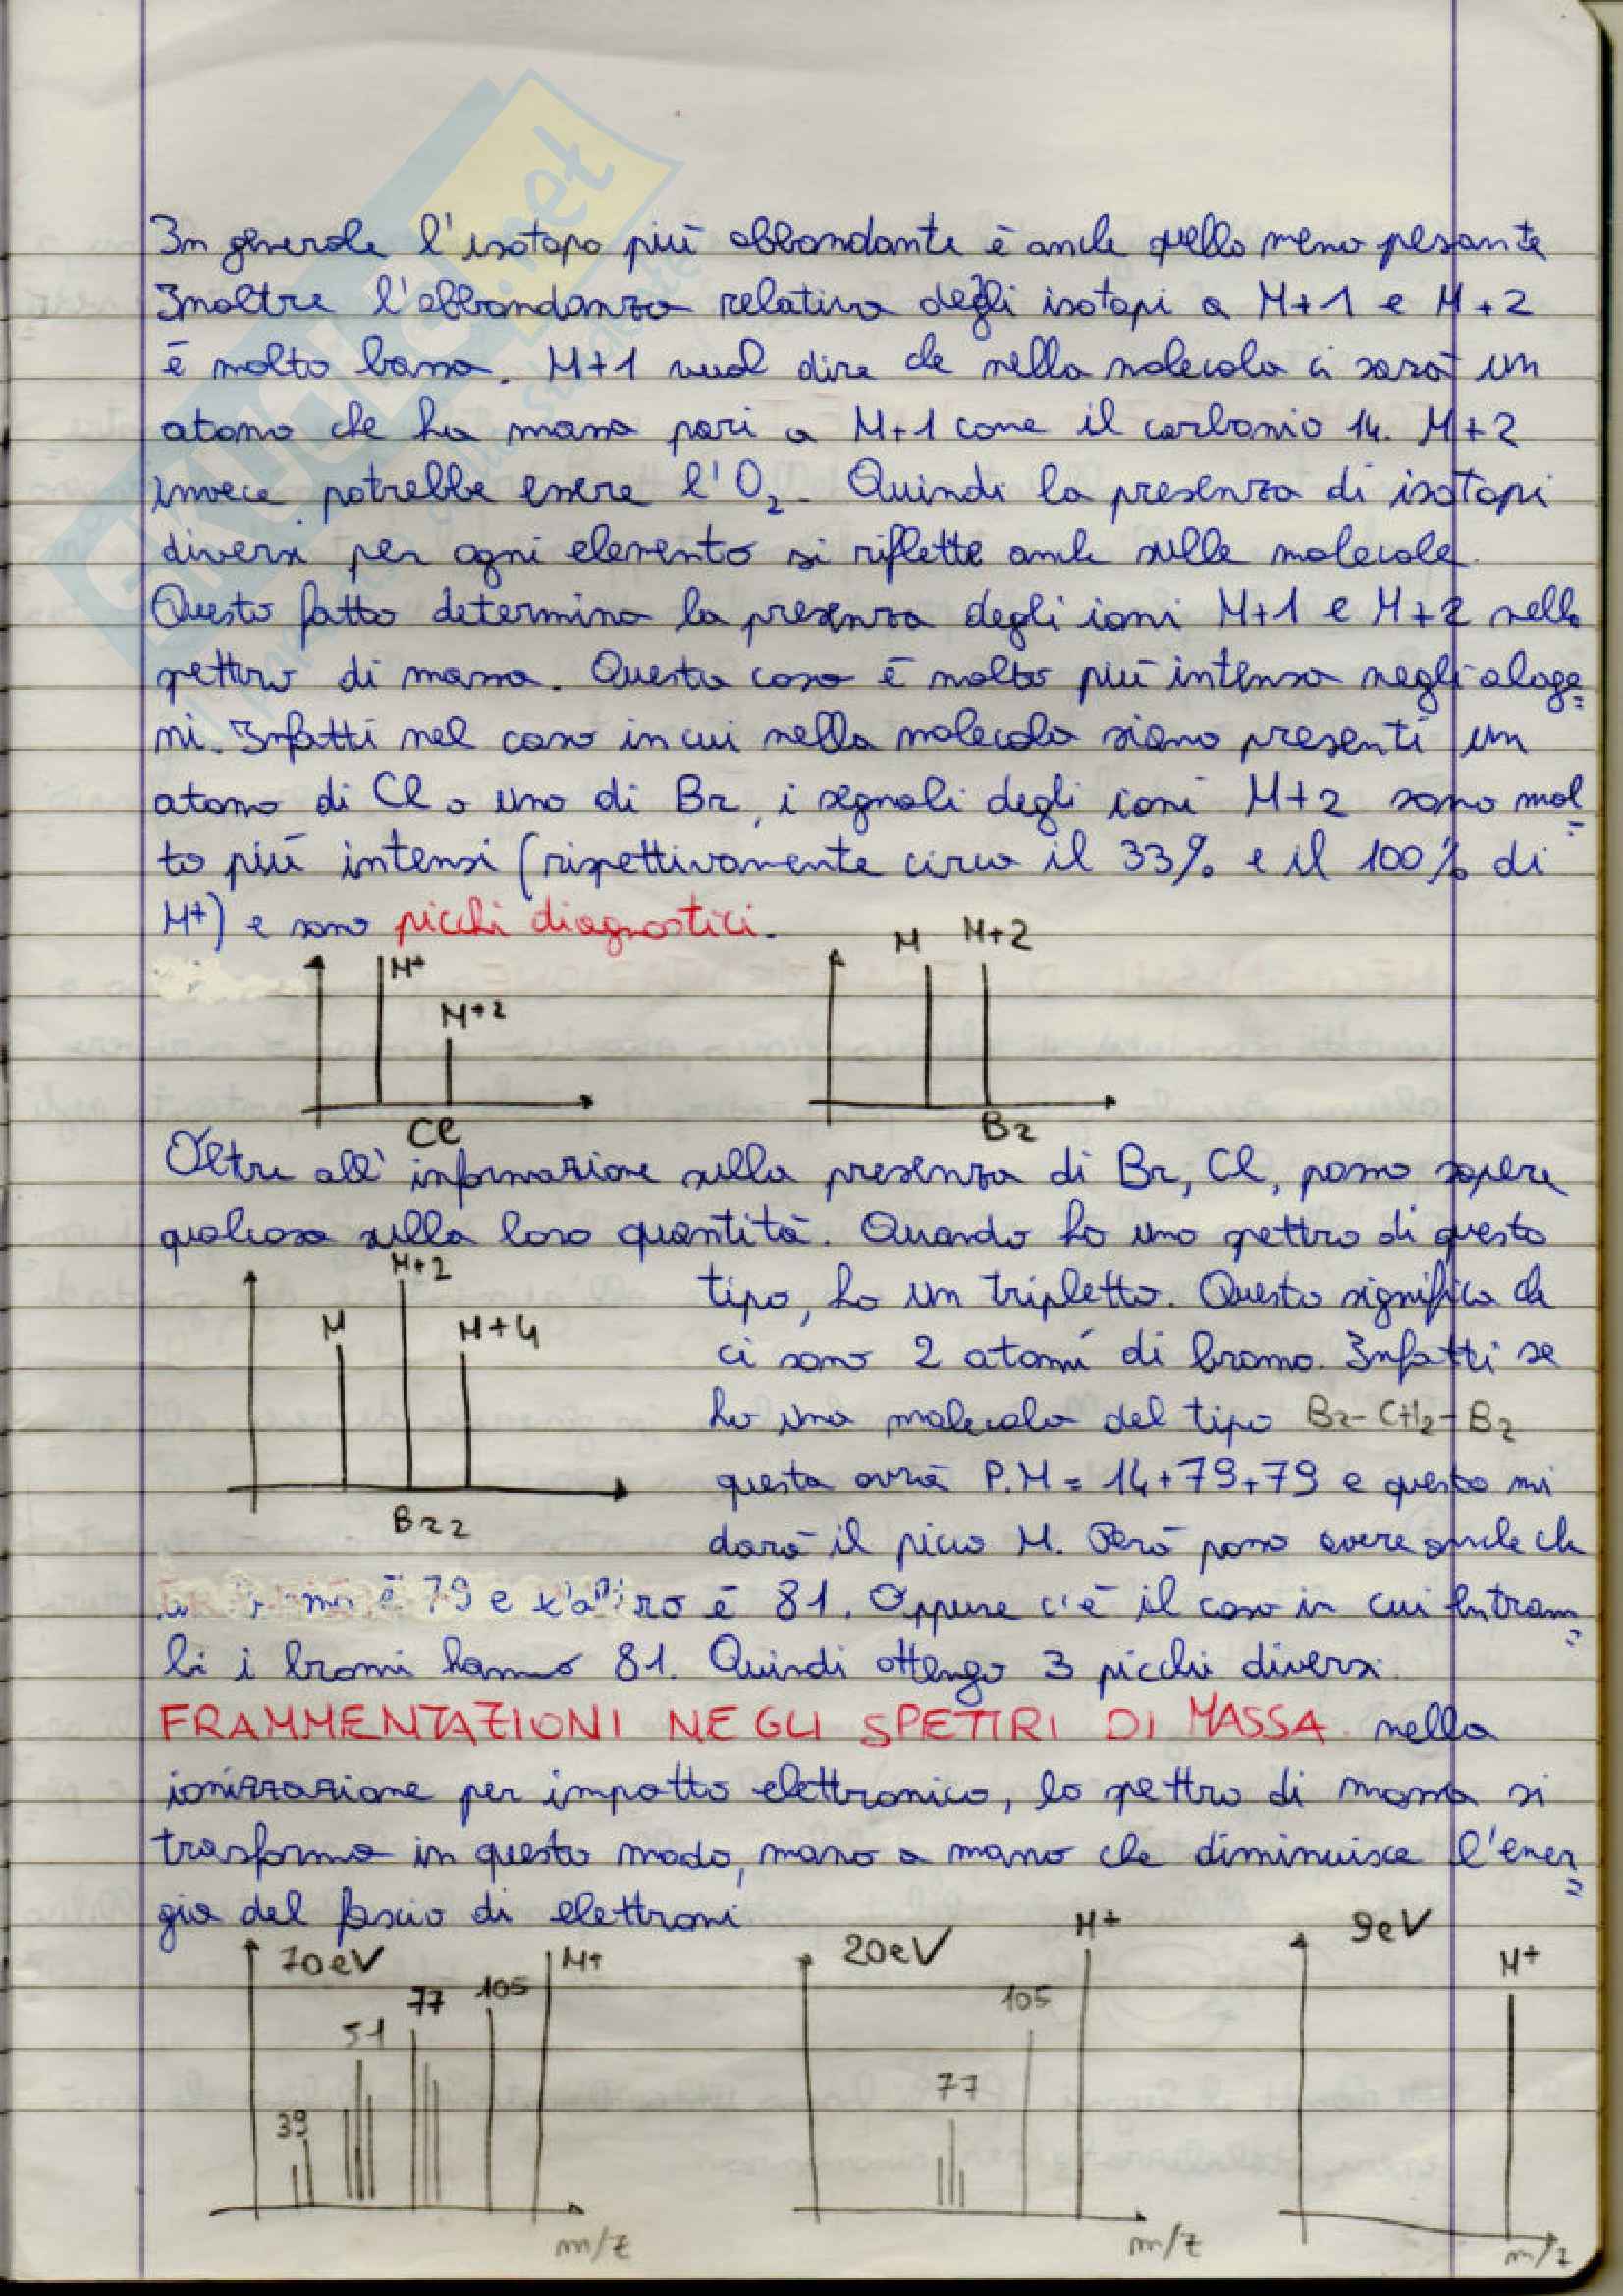 In generale l'isotopo più abbondante è anche quello meno pesante
Inoltre l'abbondanza relativa degli isotopi a M+1 e M+2
è molto bassa. M+1 vuol dire che nella molecola ci sarà un
atomo che ha massa pari a M+1 come il carbonio 14. M+2
invece potrebbe essere l'O2. Quindi la presenza di isotopi
diversi per ogni elemento si riflette anche sulle molecole.
Questo fatto determina la presenza degli ioni M+1 e M+2 nello
spettro di massa. Questa cosa è molto più intensa negli aloge=
ni. Infatti nel caso in cui nella molecola siano presenti un
atomo di Cl o uno di Br, i segnali degli ioni M+2 sono mol=
to più intensi (rispettivamente circa il 33% e il 100% di
M+) e sono picchi diagnostici.
M+ M+2 Cl
M M+2 Br
Oltre all'informazione sulla presenza di Br, Cl, posso sapere
qualcosa sulla loro quantità. Quando ho uno spettro di questo
M M+2 M+4 Br2
tipo, ho un tripletto. Questo significa che
ci sono 2 atomi di bromo. Infatti se
ho una molecola del tipo Br-CH2-Br
questa avrà P.M = 14+79+79 e questo mi
darà il picco M. Però posso avere anche che
è 79 e è 81. Oppure c'è il caso in cui entram=
bi i bromi hanno 81. Quindi ottengo 3 picchi diversi.
FRAMMENTAZIONI NEGLI SPETTRI DI MASSA. nella
ionizzazione per impatto elettronico, lo spettro di massa si
trasforma in questo modo, mano a mano che diminuisce l'ener=
gia del fascio di elettroni
70eV 39 51 77 105 M+ m/z
20eV 77 105 M+ m/z
9eV M+ m/z